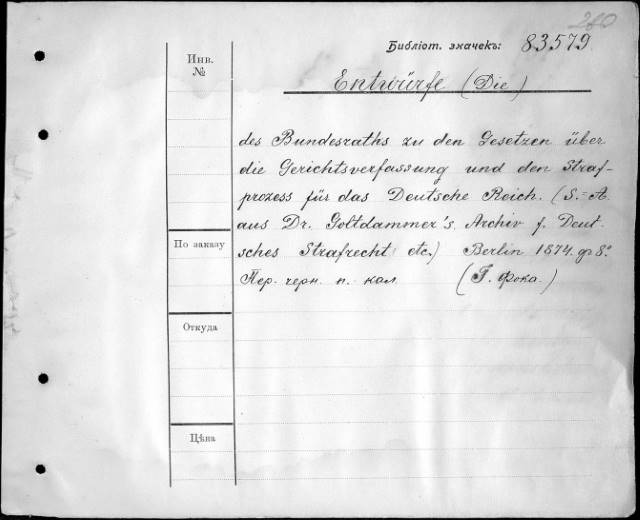 280
Библіот. значекъ: 83579.
Инв.
№
Entwürfe (Die)
des Bundesraths zu den Gesetzen über
die Gerichtsverfassung und den Straf-
prozess für das Deutsche Reich. (S.=A.
aus Dr. Goltdammer's Archiv f. Deut-
sches Strafrecht etc.) Berlin 1874. gr 8°.
По заказу
Пер. черн. п. кол. (Г. Фока.)
Откуда
Цѣна